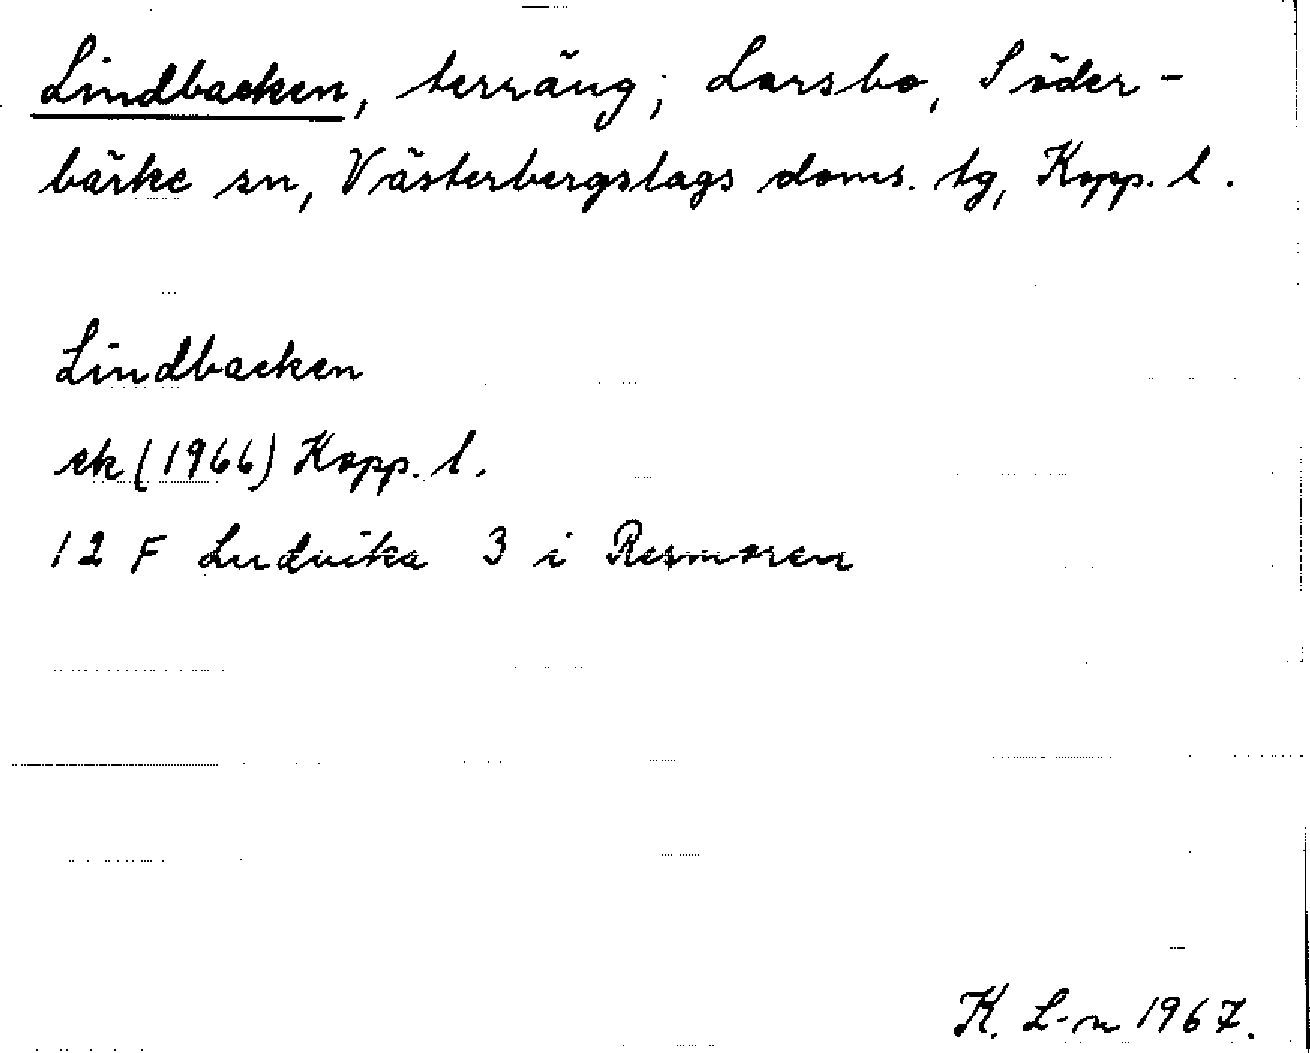 Lindbacken, terräng; Larsbo, Söder-
bärke sn, Västerbergslags doms. tg, Kopp. l.
Lindbacken
ek (1966) Kopp. l.
12 F Ludvika 3 i Resmoren
K. L-n 1967.